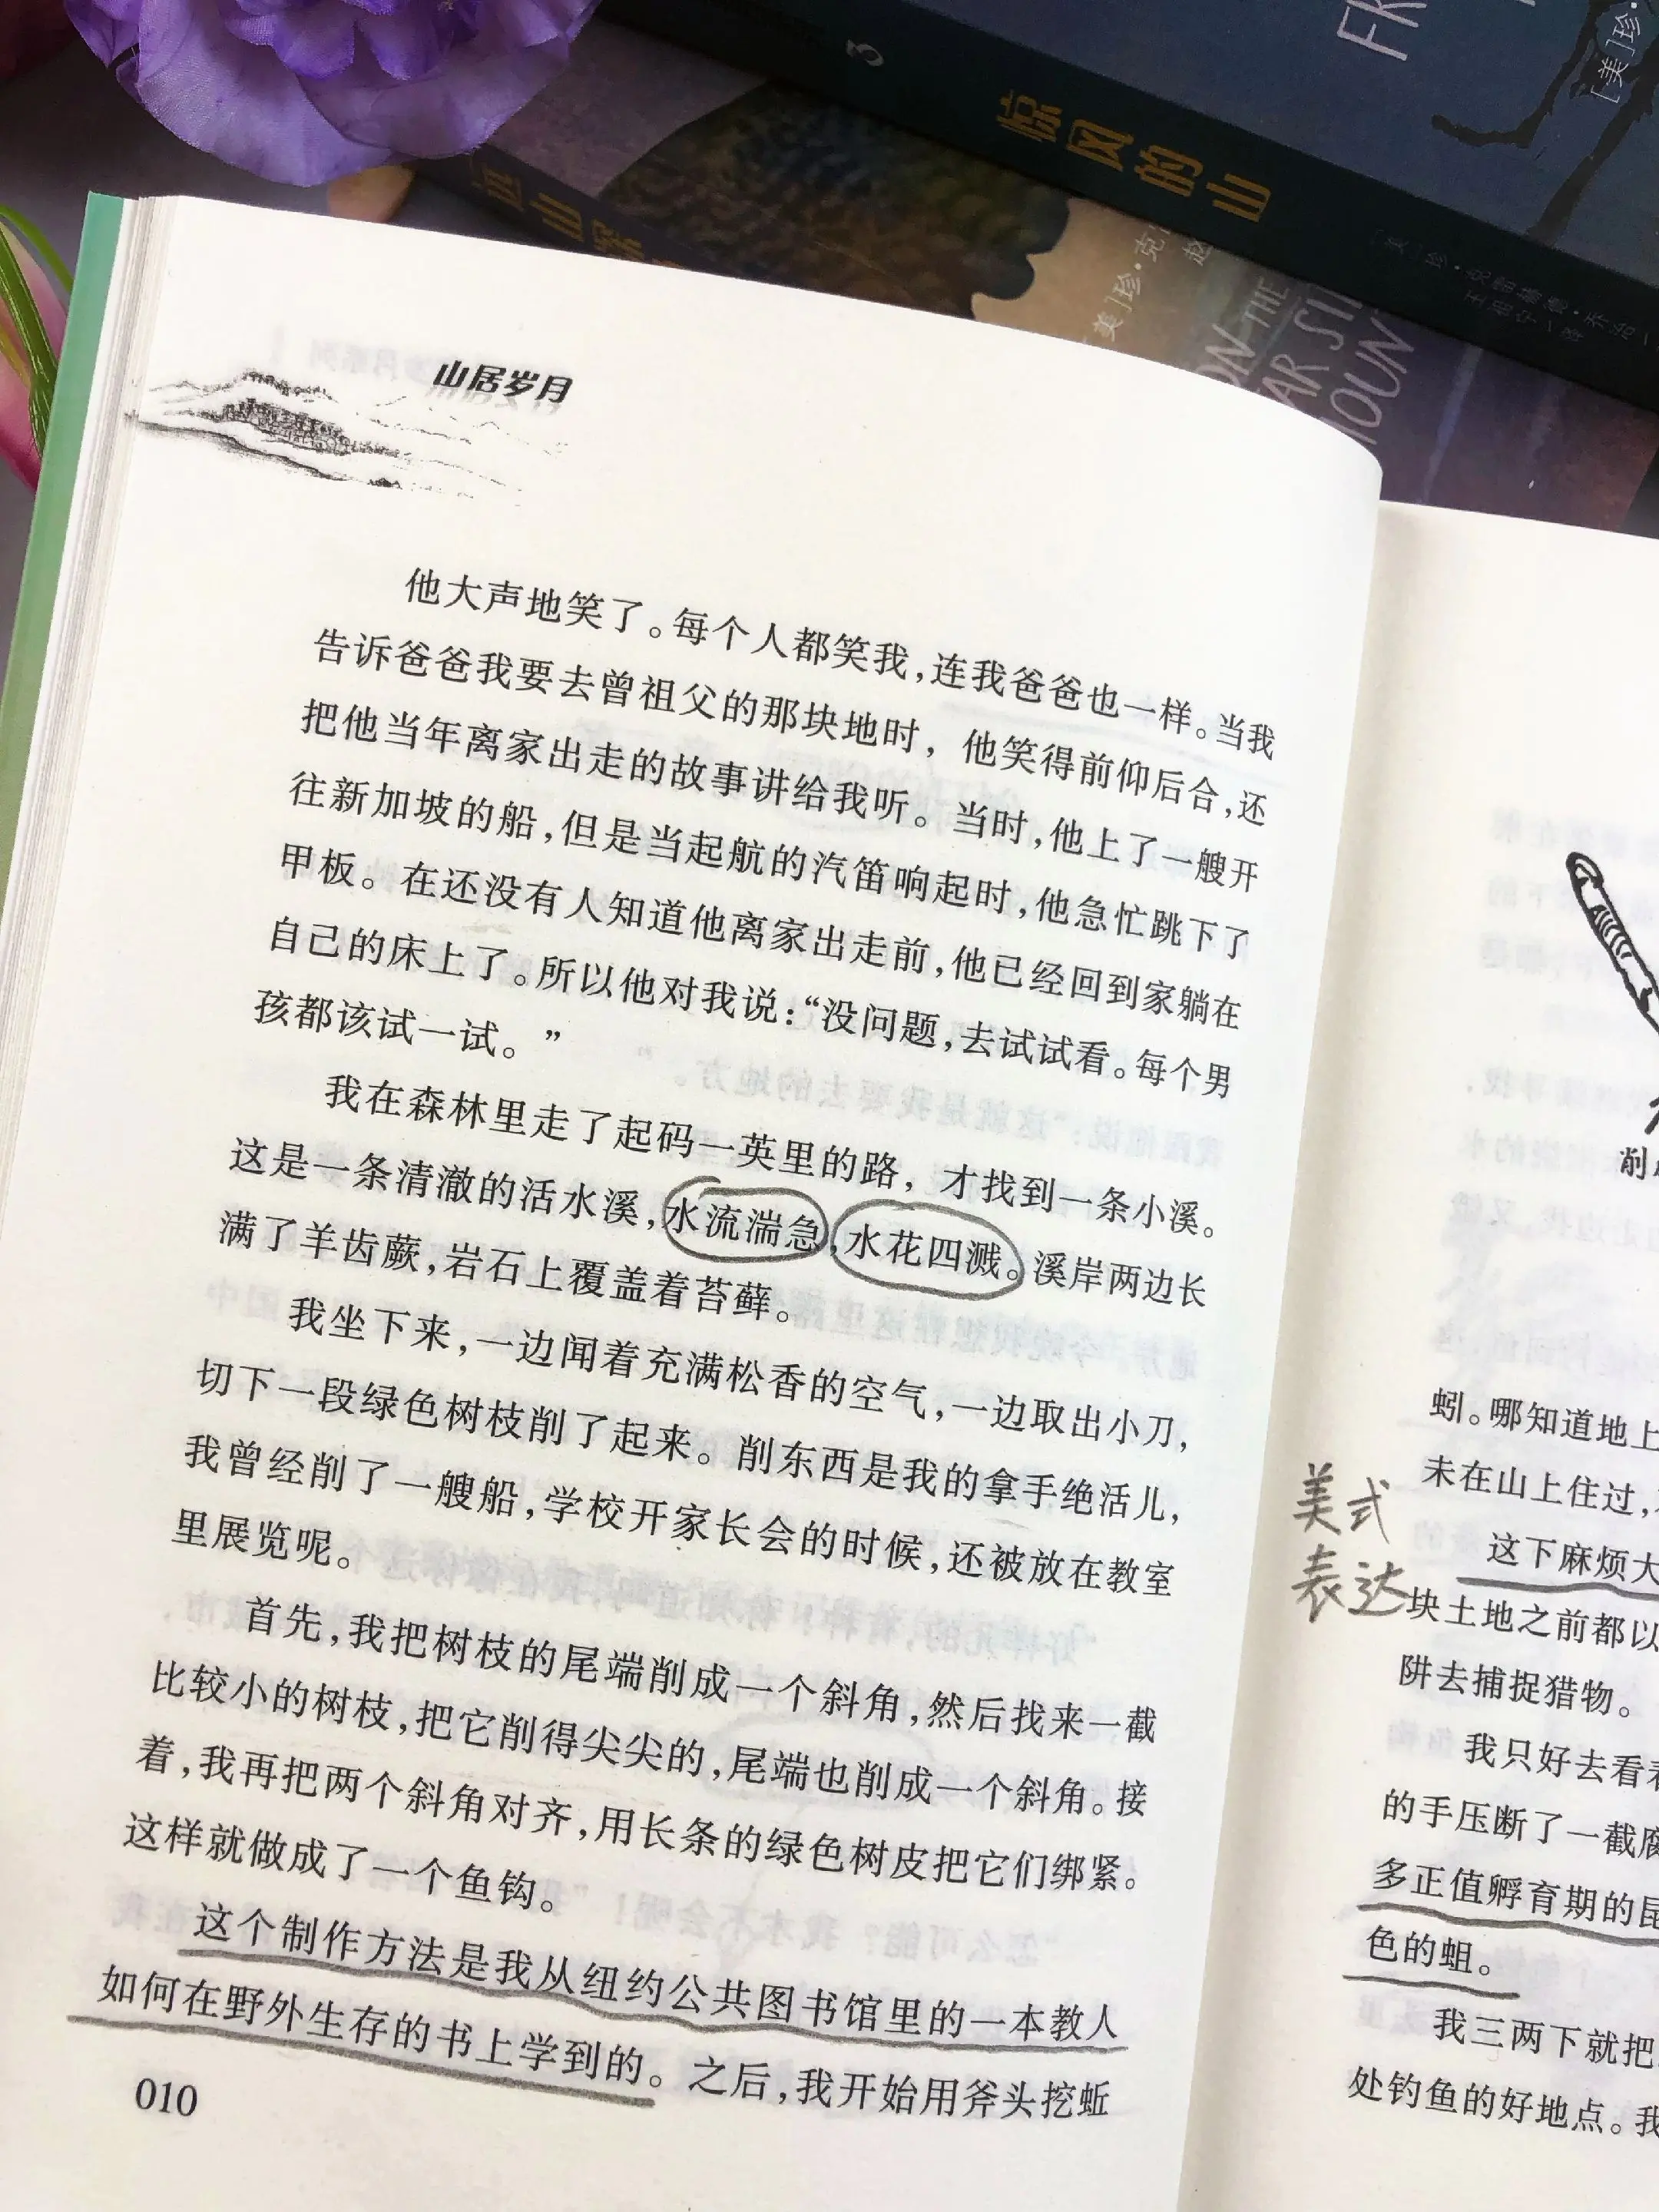 3
惊风的山
FR
[美]珍·
远山深
[美]珍·克
赵
ON THE
AR SI
MOUN
山居岁月
他大声地笑了。每个人都笑我,连我爸爸也一样。当我
告诉爸爸我要去曾祖父的那块地时，他笑得前仰后合,还
把他当年离家出走的故事讲给我听。当时,他上了一艘开
往新加坡的船,但是当起航的汽笛响起时,他急忙跳下了
甲板。在还没有人知道他离家出走前,他已经回到家躺在
自己的床上了。所以他对我说:“没问题,去试试看。每个男
孩都该试一试。”
我在森林里走了起码一英里的路，才找到一条小溪。
这是一条清澈的活水溪,水流湍急,水花四溅。溪岸两边长
满了羊齿蕨,岩石上覆盖着苔藓。
我坐下来,一边闻着充满松香的空气,一边取出小刀,
切下一段绿色树枝削了起来。削东西是我的拿手绝活儿,
我曾经削了一艘船,学校开家长会的时候,还被放在教室
里展览呢。
首先,我把树枝的尾端削成一个斜角,然后找来一截
比较小的树枝,把它削得尖尖的,尾端也削成一个斜角。接
着,我再把两个斜角对齐,用长条的绿色树皮把它们绑紧。
这样就做成了一个鱼钩。
这个制作方法是我从纽约公共图书馆里的一本教人
如何在野外生存的书上学到的。之后,我开始用斧头挖蚯
010
削
蚓。哪知道地上
未在山上住过,
美式
表达
这下麻烦大
块土地之前都以
阱去捕捉猎物。
我只好去看看
的手压断了一截腐
多正值孵育期的昆
色的蛆。
我三两下就把
处钓鱼的好地点。我